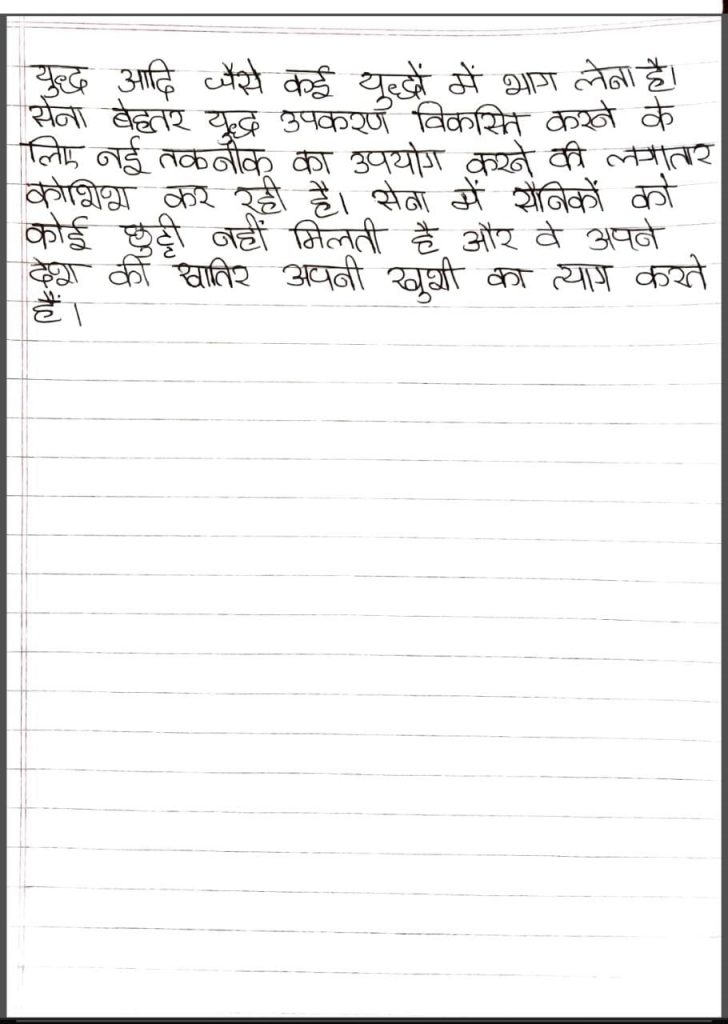 युद्ध आदि जैसे कई युद्धों में भाग लेना है।
सेना बेहतर युद्ध उपकरण विकसित करने के
लिए नई तकनीक का उपयोग करने की लगातार
कोशिश कर रही है। सेना में सैनिकों को
कोई छुट्टी नहीं मिलती है और वे अपने
देश की खातिर अपनी खुशी का त्याग करते
हैं।